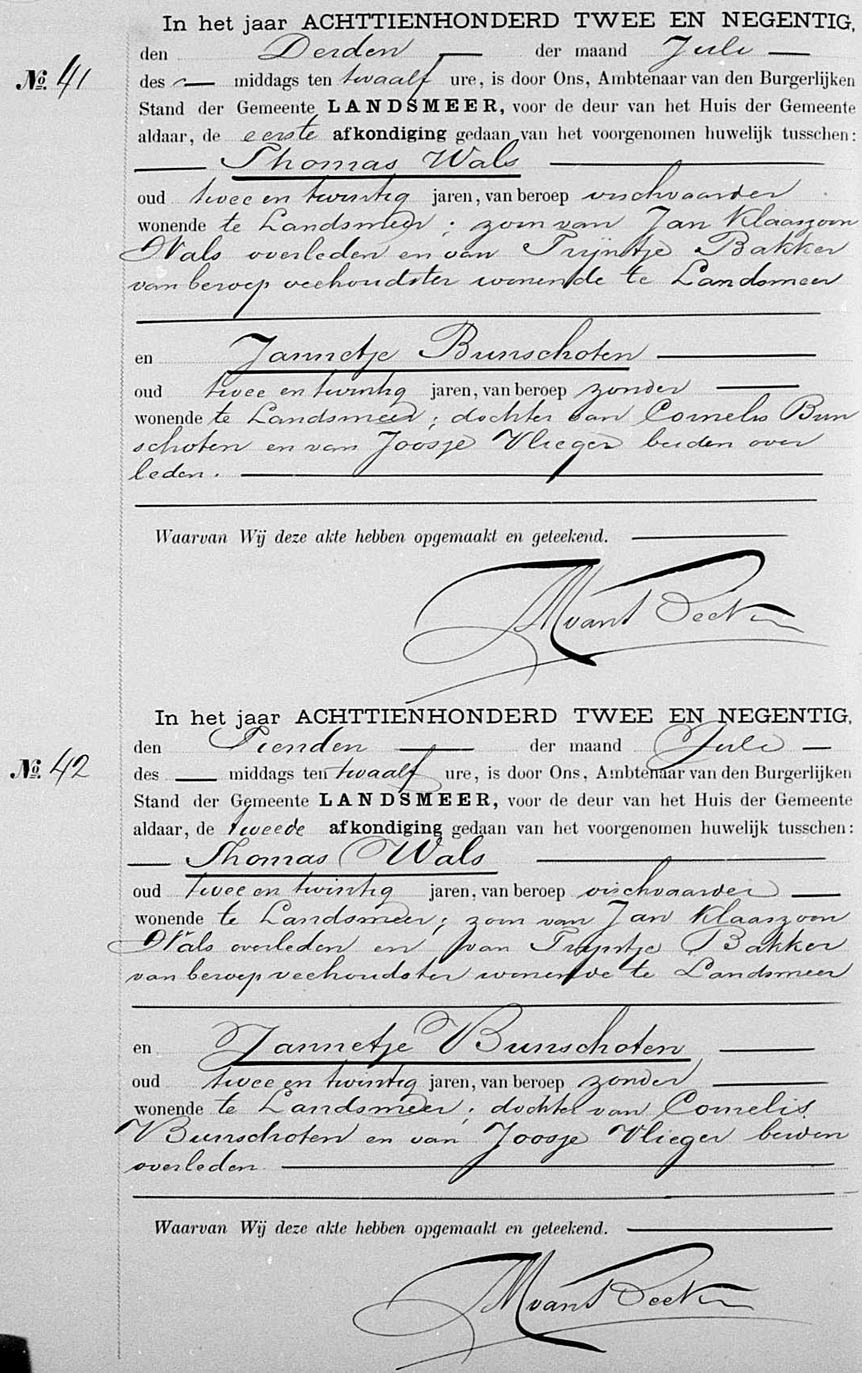 In het jaar ACHTTIENHONDERD TWEE EN NEGENTIG,
den Derden der maand Juli
No. 41 des middags ten twaalf ure, is door Ons, Ambtenaar van den Burgerlijken
Stand der Gemeente LANDSMEER, voor de deur van het Huis der Gemeente
aldaar, de eerste afkondiging gedaan van het voorgenomen huwelijk tusschen:
Thomas Wals
oud twee en twintig jaren, van beroep vischvaarder
wonende te Landsmeer; zoon van Jan Klaaszoon
Wals overleden en van Trijntje Bakker
van beroep veehoudster wonende te Landsmeer
en Jannetje Bunschoten
oud twee en twintig jaren, van beroep zonder
wonende te Landsmeer; dochter van Cornelis Bun
schoten en van Joosje Vlieger beiden over
leden.
Waarvan Wij deze akte hebben opgemaakt en geteekend.
In het jaar ACHTTIENHONDERD TWEE EN NEGENTIG,
den Tienden der maand Juli
No. 42 des middags ten twaalf ure, is door Ons, Ambtenaar van den Burgerlijken
Stand der Gemeente LANDSMEER, voor de deur van het Huis der Gemeente
aldaar, de tweede afkondiging gedaan van het voorgenomen huwelijk tusschen:
Thomas Wals
oud twee en twintig jaren, van beroep vischvaarder
wonende te Landsmeer; zoon van Jan Klaaszoon
Wals overleden en van Trijntje Bakker
van beroep veehoudster wonende te Landsmeer
en Jannetje Bunschoten
oud twee en twintig jaren, van beroep zonder
wonende te Landsmeer; dochter van Cornelis
Bunschoten en van Joosje Vlieger beiden
overleden
Waarvan Wij deze akte hebben opgemaakt en geteekend.